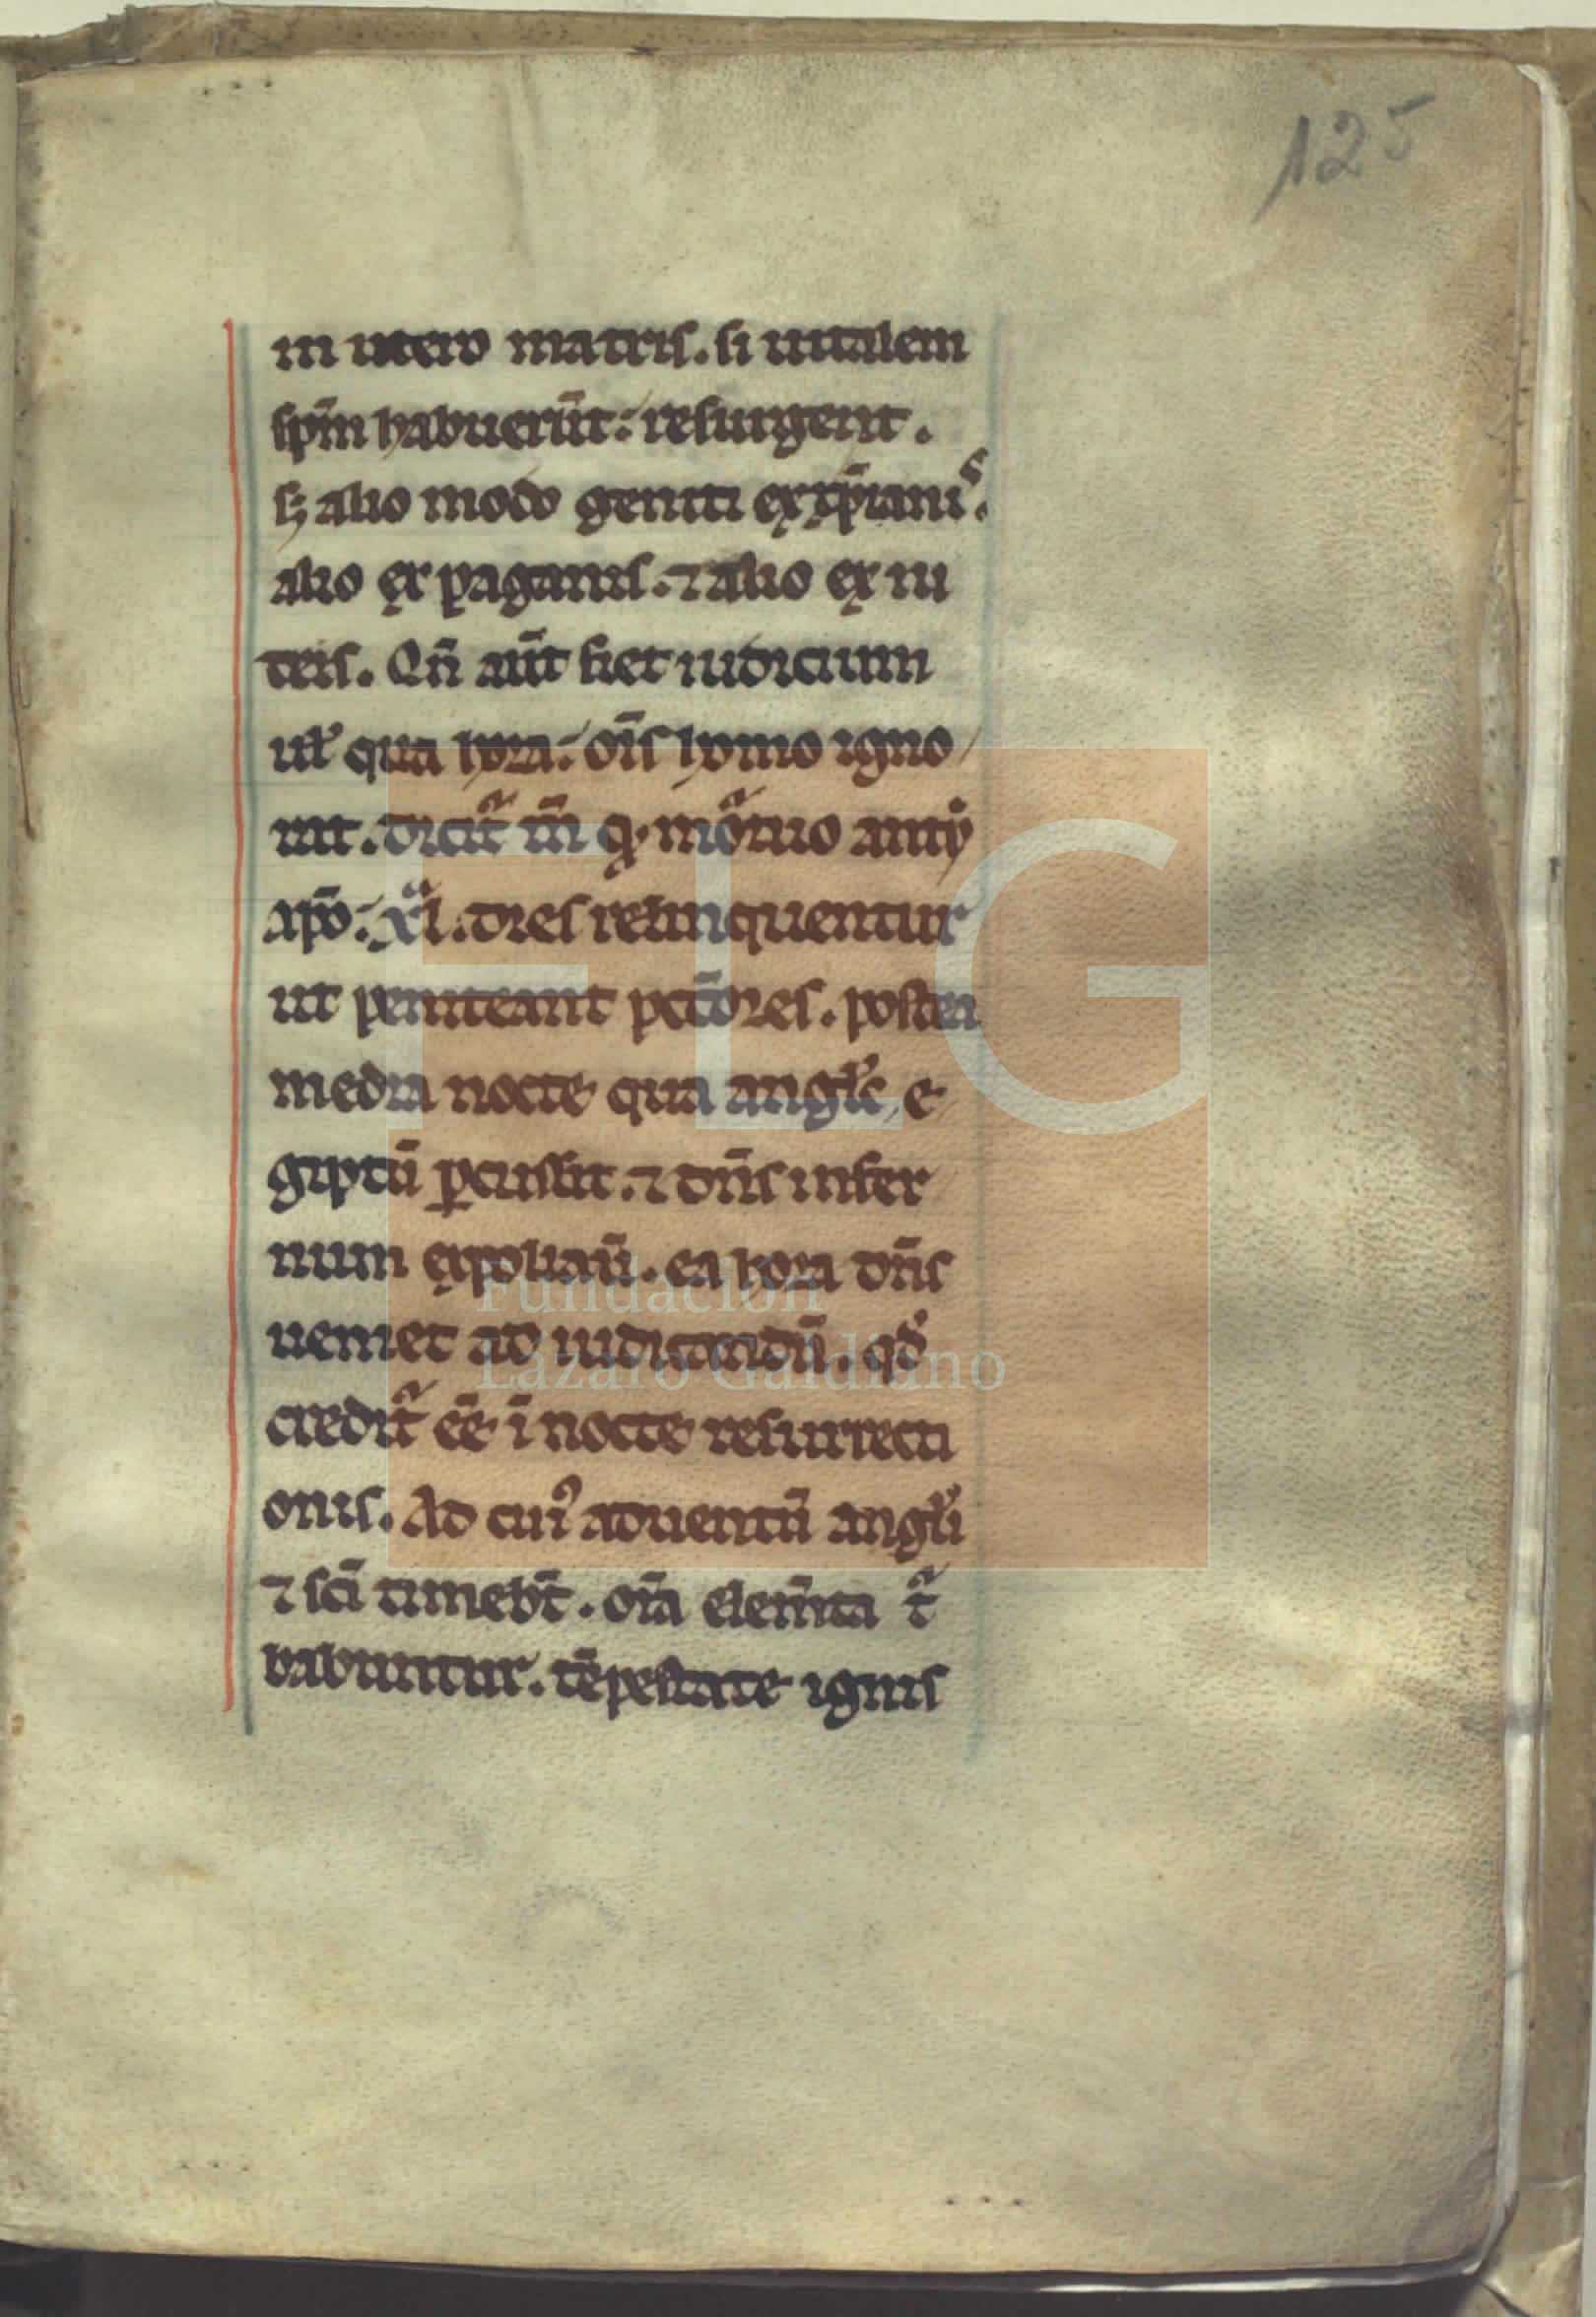 125
in utero matris. si uitalem
sp̄m habuerūt: resurgent.
sꝫ alio modo geniti ex xp̄ianis.
alio ex paganis. ⁊ alio ex iu
deis. Qn̄ aūt fiet iudicium
ul' qua hora: oīs homo igno
rat. dicit᷑ tn̄ ꝙ mortuo antix̊
apō: xl. dies relinquentur
ut peniteant pctōres. postea
media nocte qua angl's e
giptū ꝑcussit. ⁊ dn̄s infer
num expoliauī. ea hora dn̄s
ueniet ad iudicandū. qd'
credit᷑ ēē ī nocte resurrecti
onis. Ad cuiꝰ aduentū angl'i
⁊ sc̄i timebt̄. oīa elem̄ta t᷑
babuntur. tēpestate ignis
FLG
Fundación
Lázaro Galdiano